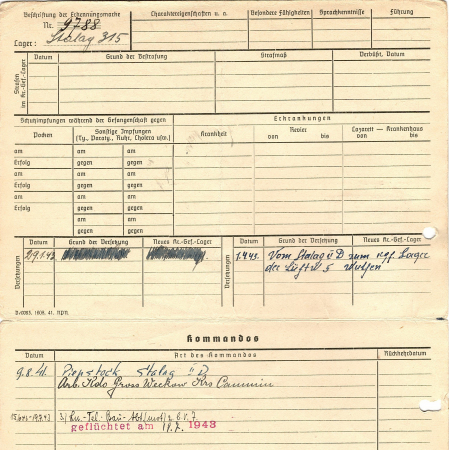 Beschriftung der Erkennungsmarke
Nr. 9788
Lager: Stalag 315
Charaktereigenschaften u. a.
Besondere Fähigkeiten
Sprachkenntnisse
Führung
Strafen im Kr.-Gef.-Lager
Datum
Grund der Bestrafung
Strafmaß
Verbüßt, Datum
Schutzimpfungen während der Gefangenschaft gegen
Erkrankungen
Pocken
Sonstige Impfungen
(Ty., Paraty., Ruhr, Cholera usw.)
Krankheit
Revier
von bis
Lazarett — Krankenhaus
von bis
am am am
Erfolg gegen gegen
am am am
Erfolg gegen gegen
am am am
Erfolg gegen gegen
am am
gegen gegen
Versetzungen
Datum
Grund der Versetzung
Neues Kr.-Gef.-Lager
Versetzungen
Datum
Grund der Versetzung
Neues Kr.-Gef.-Lager
Vom Stalag II D zum Lager
der Luftw 5
Kommandos
Datum
Art des Kommandos
Rückkehrdatum
9.8.41. Stalag II D
Arb. Kdo Gross Weckow Krs Cammin
geflüchtet am 18.7. 1943